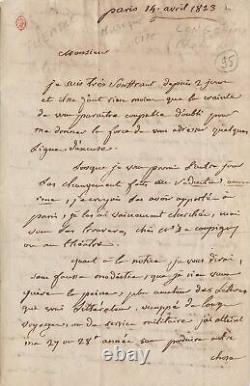 paris 14 avril 1823
95
Monsieur
je suis très souffrant depuis 2 jours
et il ne faut rien moins que la crainte de
vous paraître coupable d'oubli pour
me donner la force de vous adresser quelques
lignes d'excuse.
Lorsque je vous parlai l'autre jour
des changements faits
je croyais les avoir apportés à
paris; je les ai vainement cherchés, mais
vous les trouverez, chez
ou au théâtre.
quant à la notice, je vous dirai,
sans fausse modestie, que je n'en vaux
guère la peine, plus amateur des lettres
que vrai littérateur, occupé de longs
voyages, ou de service militaire j'ai atteint
ma 27 ou 28e année sans produire autre
chose